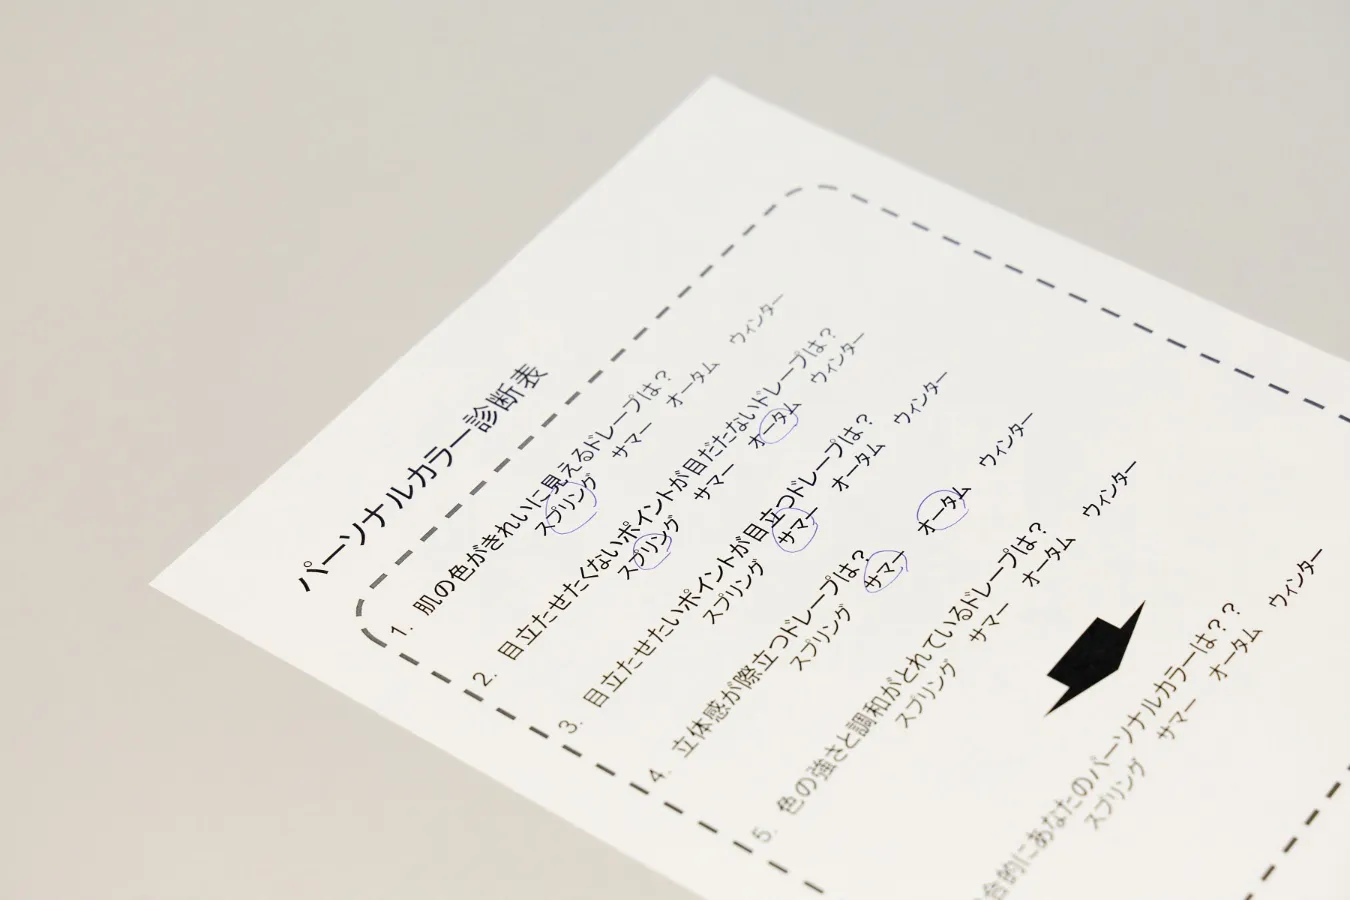 パーソナルカラー診断表
1. 肌の色がきれいに見えるドレープは?
スプリング サマー オータム ウィンター
2. 目立たせたくないポイントが目だたないドレープは?
スプリング サマー オータム ウィンター
3. 目立たせたいポイントが目立つドレープは?
スプリング サマー オータム ウィンター
4. 立体感が際立つドレープは?
スプリング サマー オータム ウィンター
5. 色の強さと調和がとれているドレープは?
スプリング サマー オータム ウィンター
合的にあなたのパーソナルカラーは??
スプリング サマー オータム ウィンター